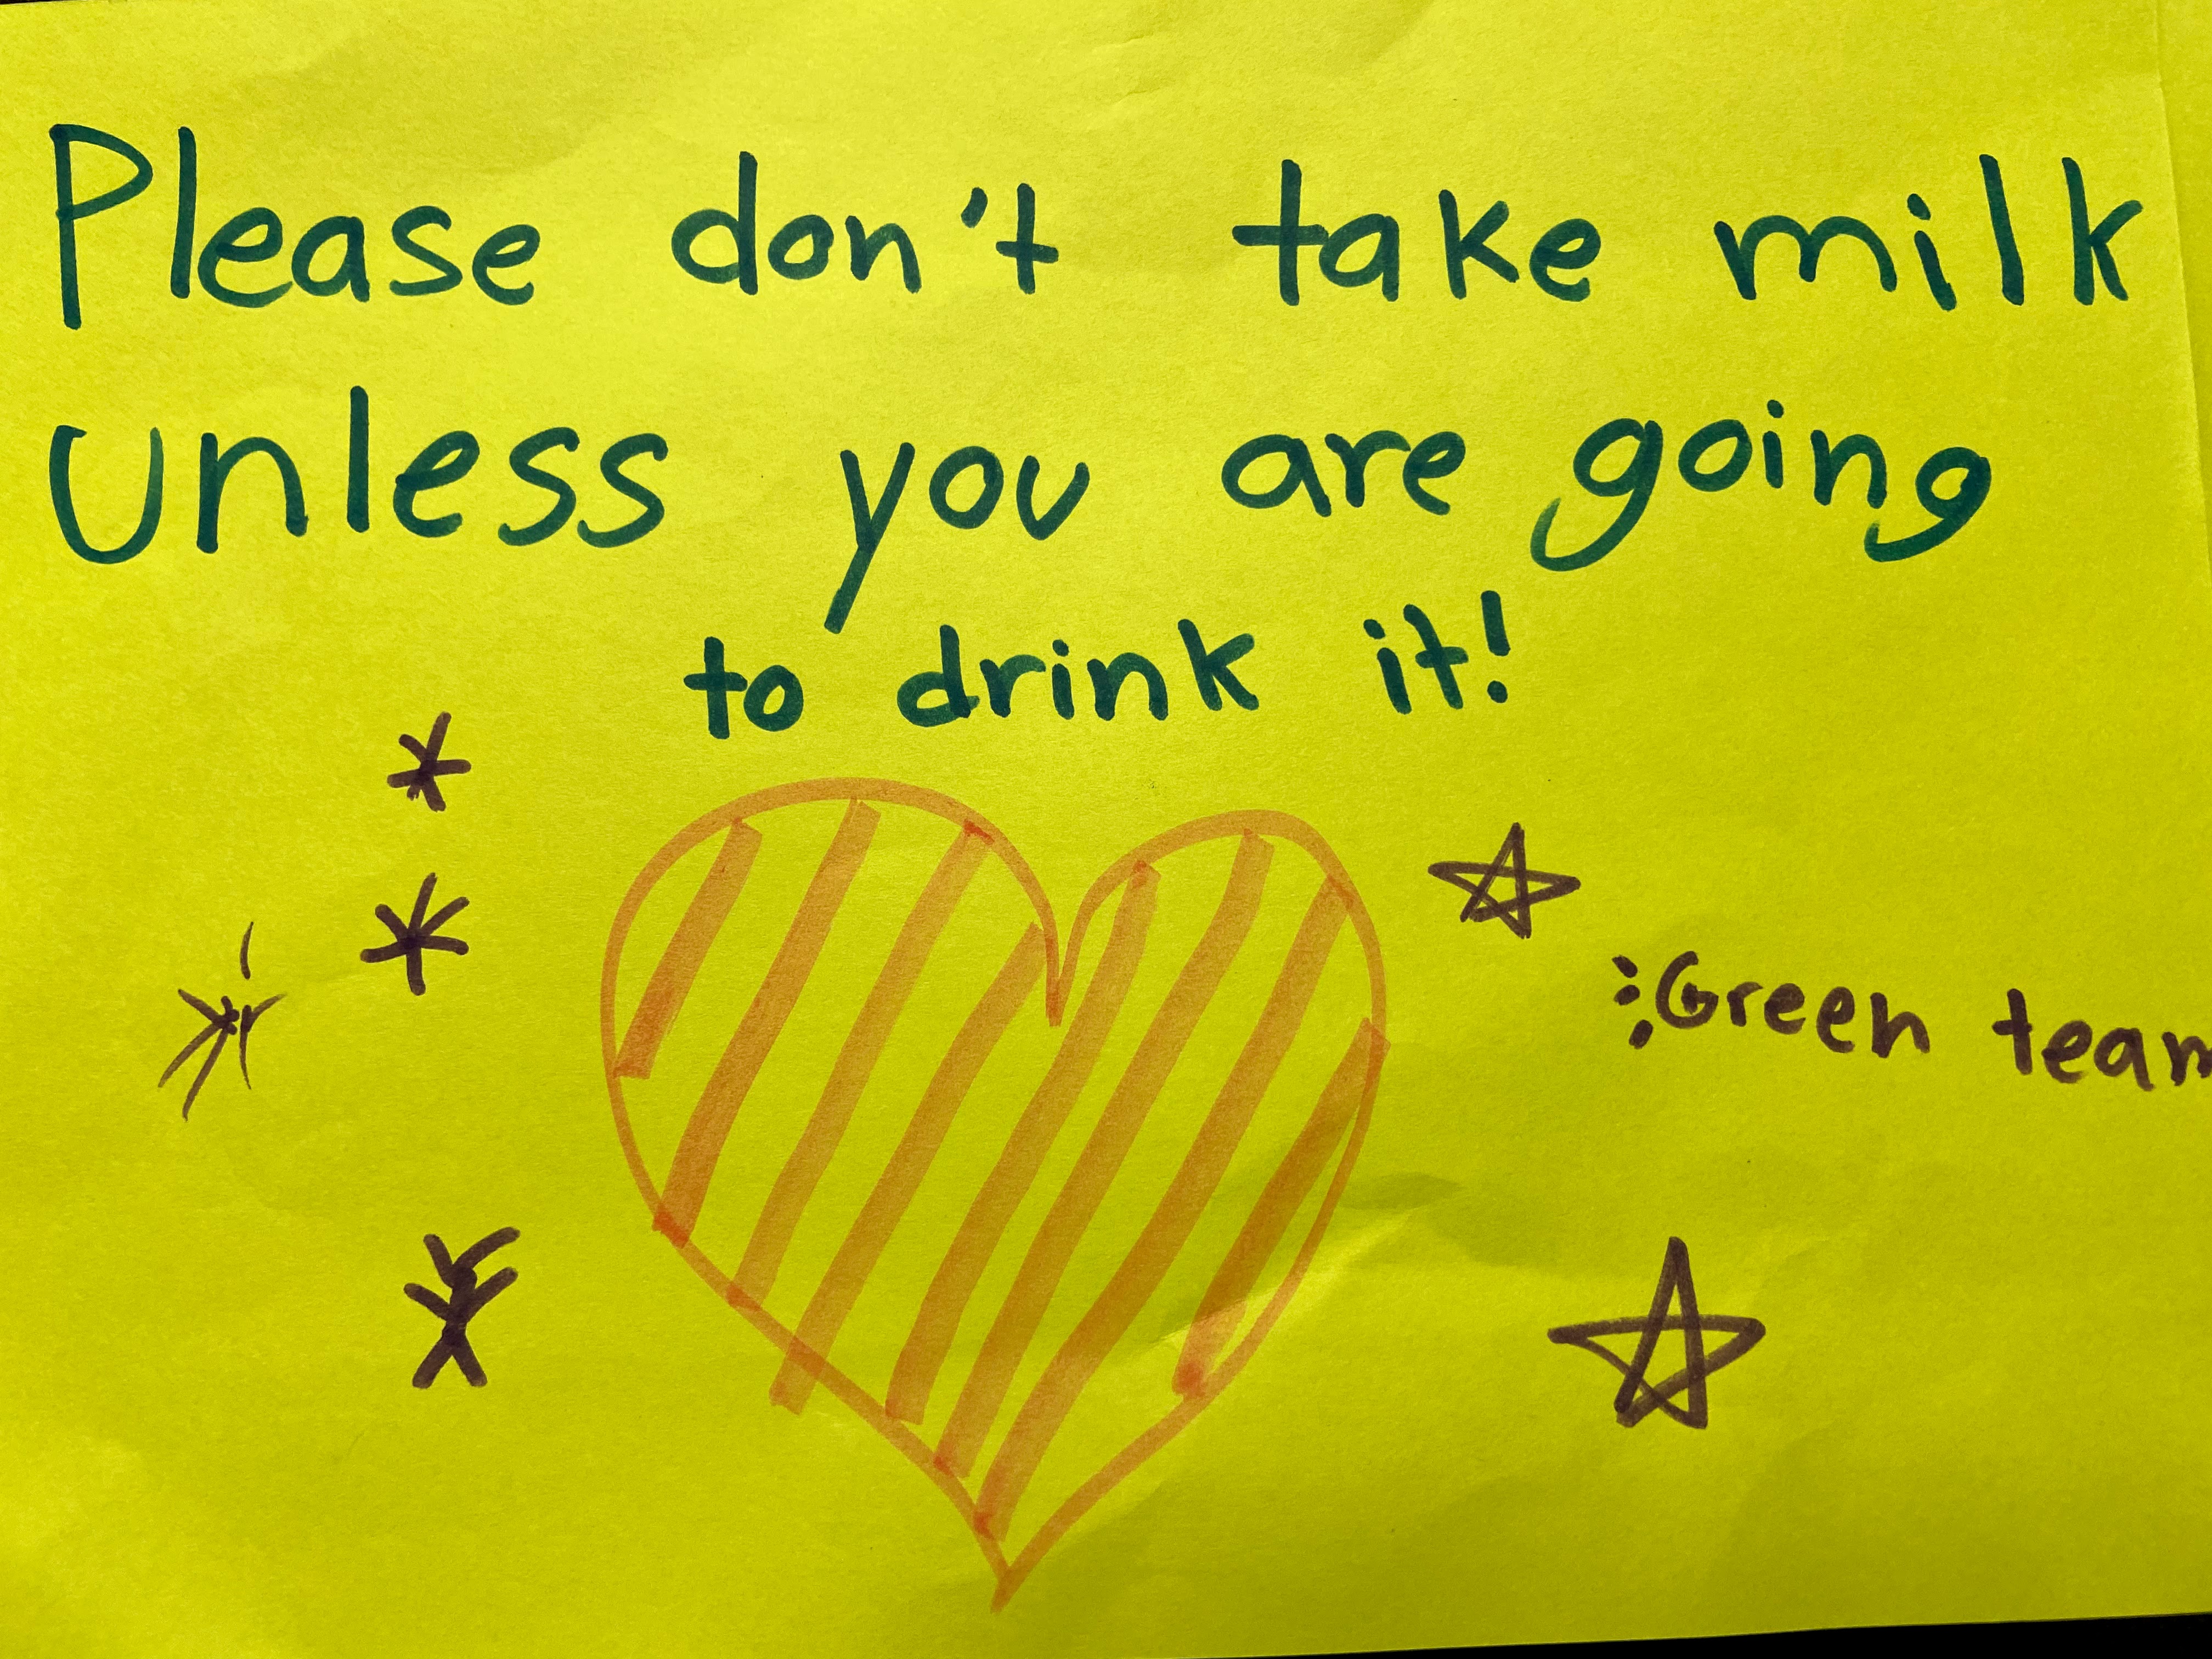 Please don't take milk
unless you are going
to drink it!
:Green team